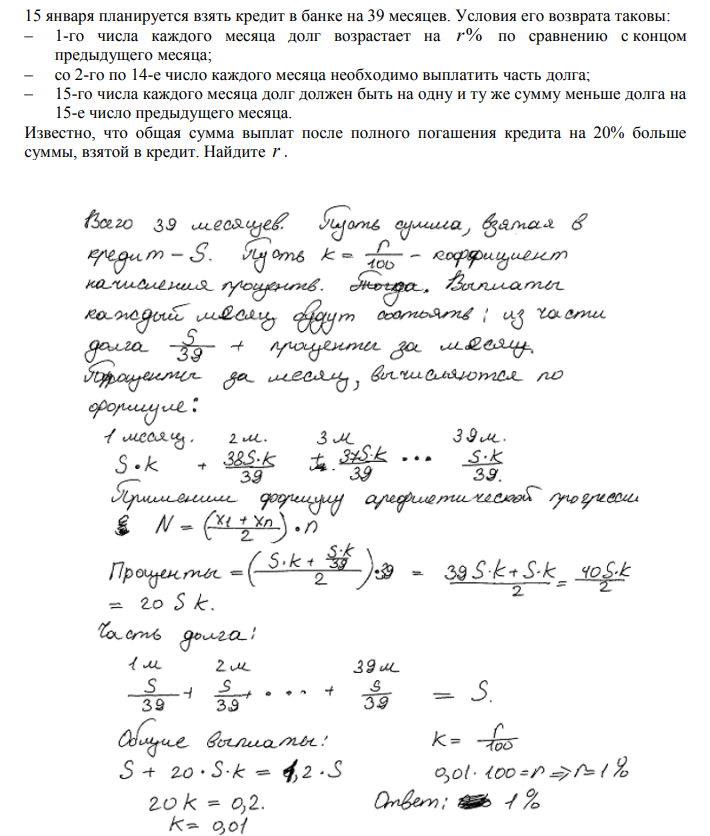 15 января планируется взять кредит в банке на 39 месяцев. Условия его возврата таковы:
– 1-го числа каждого месяца долг возрастает на r% по сравнению с концом
предыдущего месяца;
– со 2-го по 14-е число каждого месяца необходимо выплатить часть долга;
– 15-го числа каждого месяца долг должен быть на одну и ту же сумму меньше долга на
15-е число предыдущего месяца.
Известно, что общая сумма выплат после полного погашения кредита на 20% больше
суммы, взятой в кредит. Найдите r .
Всего 39 месяцев. Пусть сумма, взятая в
кредит – S. Пусть k = r/100 – коффициент
начисления процентв. Тогда. Выплаты
каждый месяц будут состоять: из части
долга S/39 + проценты за месяц.
Проценты за месяц, вычисляются по
формуле:
1 месяц. 2 м. 3 м 39 м.
S·k + 38S·k/39 + 37S·k/39 ... S·k/39.
Применим формулу арефметической прогрессии
N = (x1 + xn / 2)·n
Проценты = (S·k + S·k/39 / 2)·39 = 39S·k + S·k / 2 = 40S·k / 2
= 20 S k.
Часть долга:
1 м 2 м 39 м
S/39 + S/39 + .... + S/39 = S.
Общие выплаты: k = r/100
S + 20·S·k = 1,2·S 0,01·100 = r => r = 1%
20k = 0,2. Ответ: 1%
k = 0,01